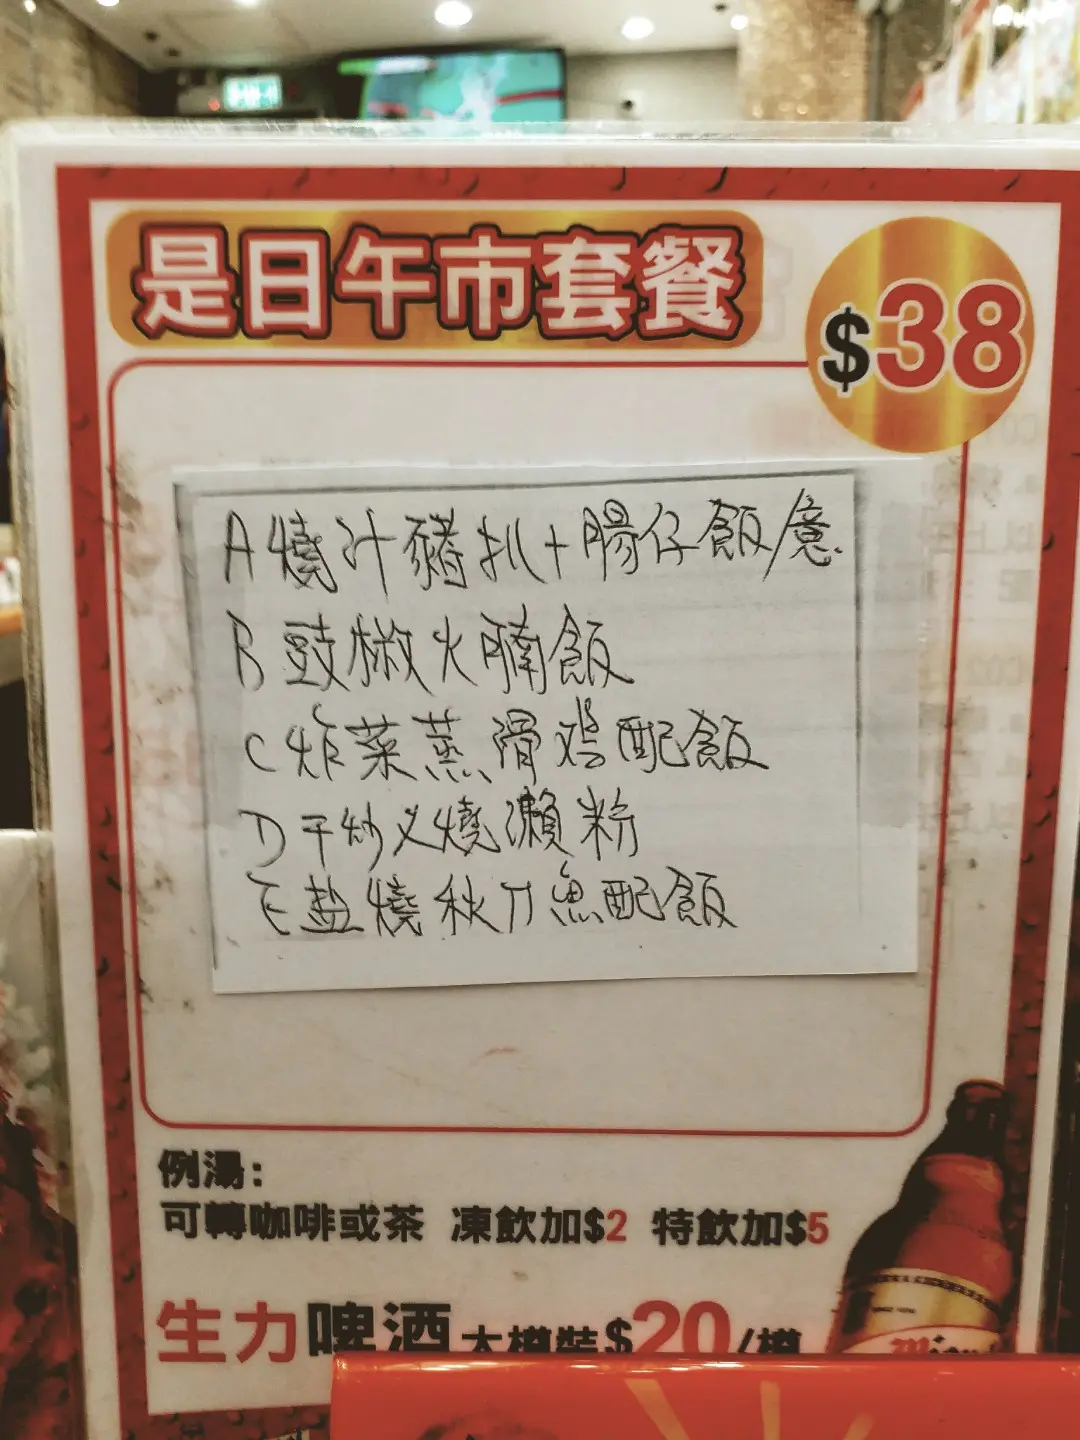 是日午市套餐
$38
A 燒汁豬扒+腸仔飯/意
B 豉椒火腩飯
C 炸菜蒸滑鸡配飯
D 干炒叉燒瀨粉
E 盐燒秋刀魚配飯
例湯：
可轉咖啡或茶 凍飲加$2 特飲加$5
生力啤酒 大樽裝$20/樽